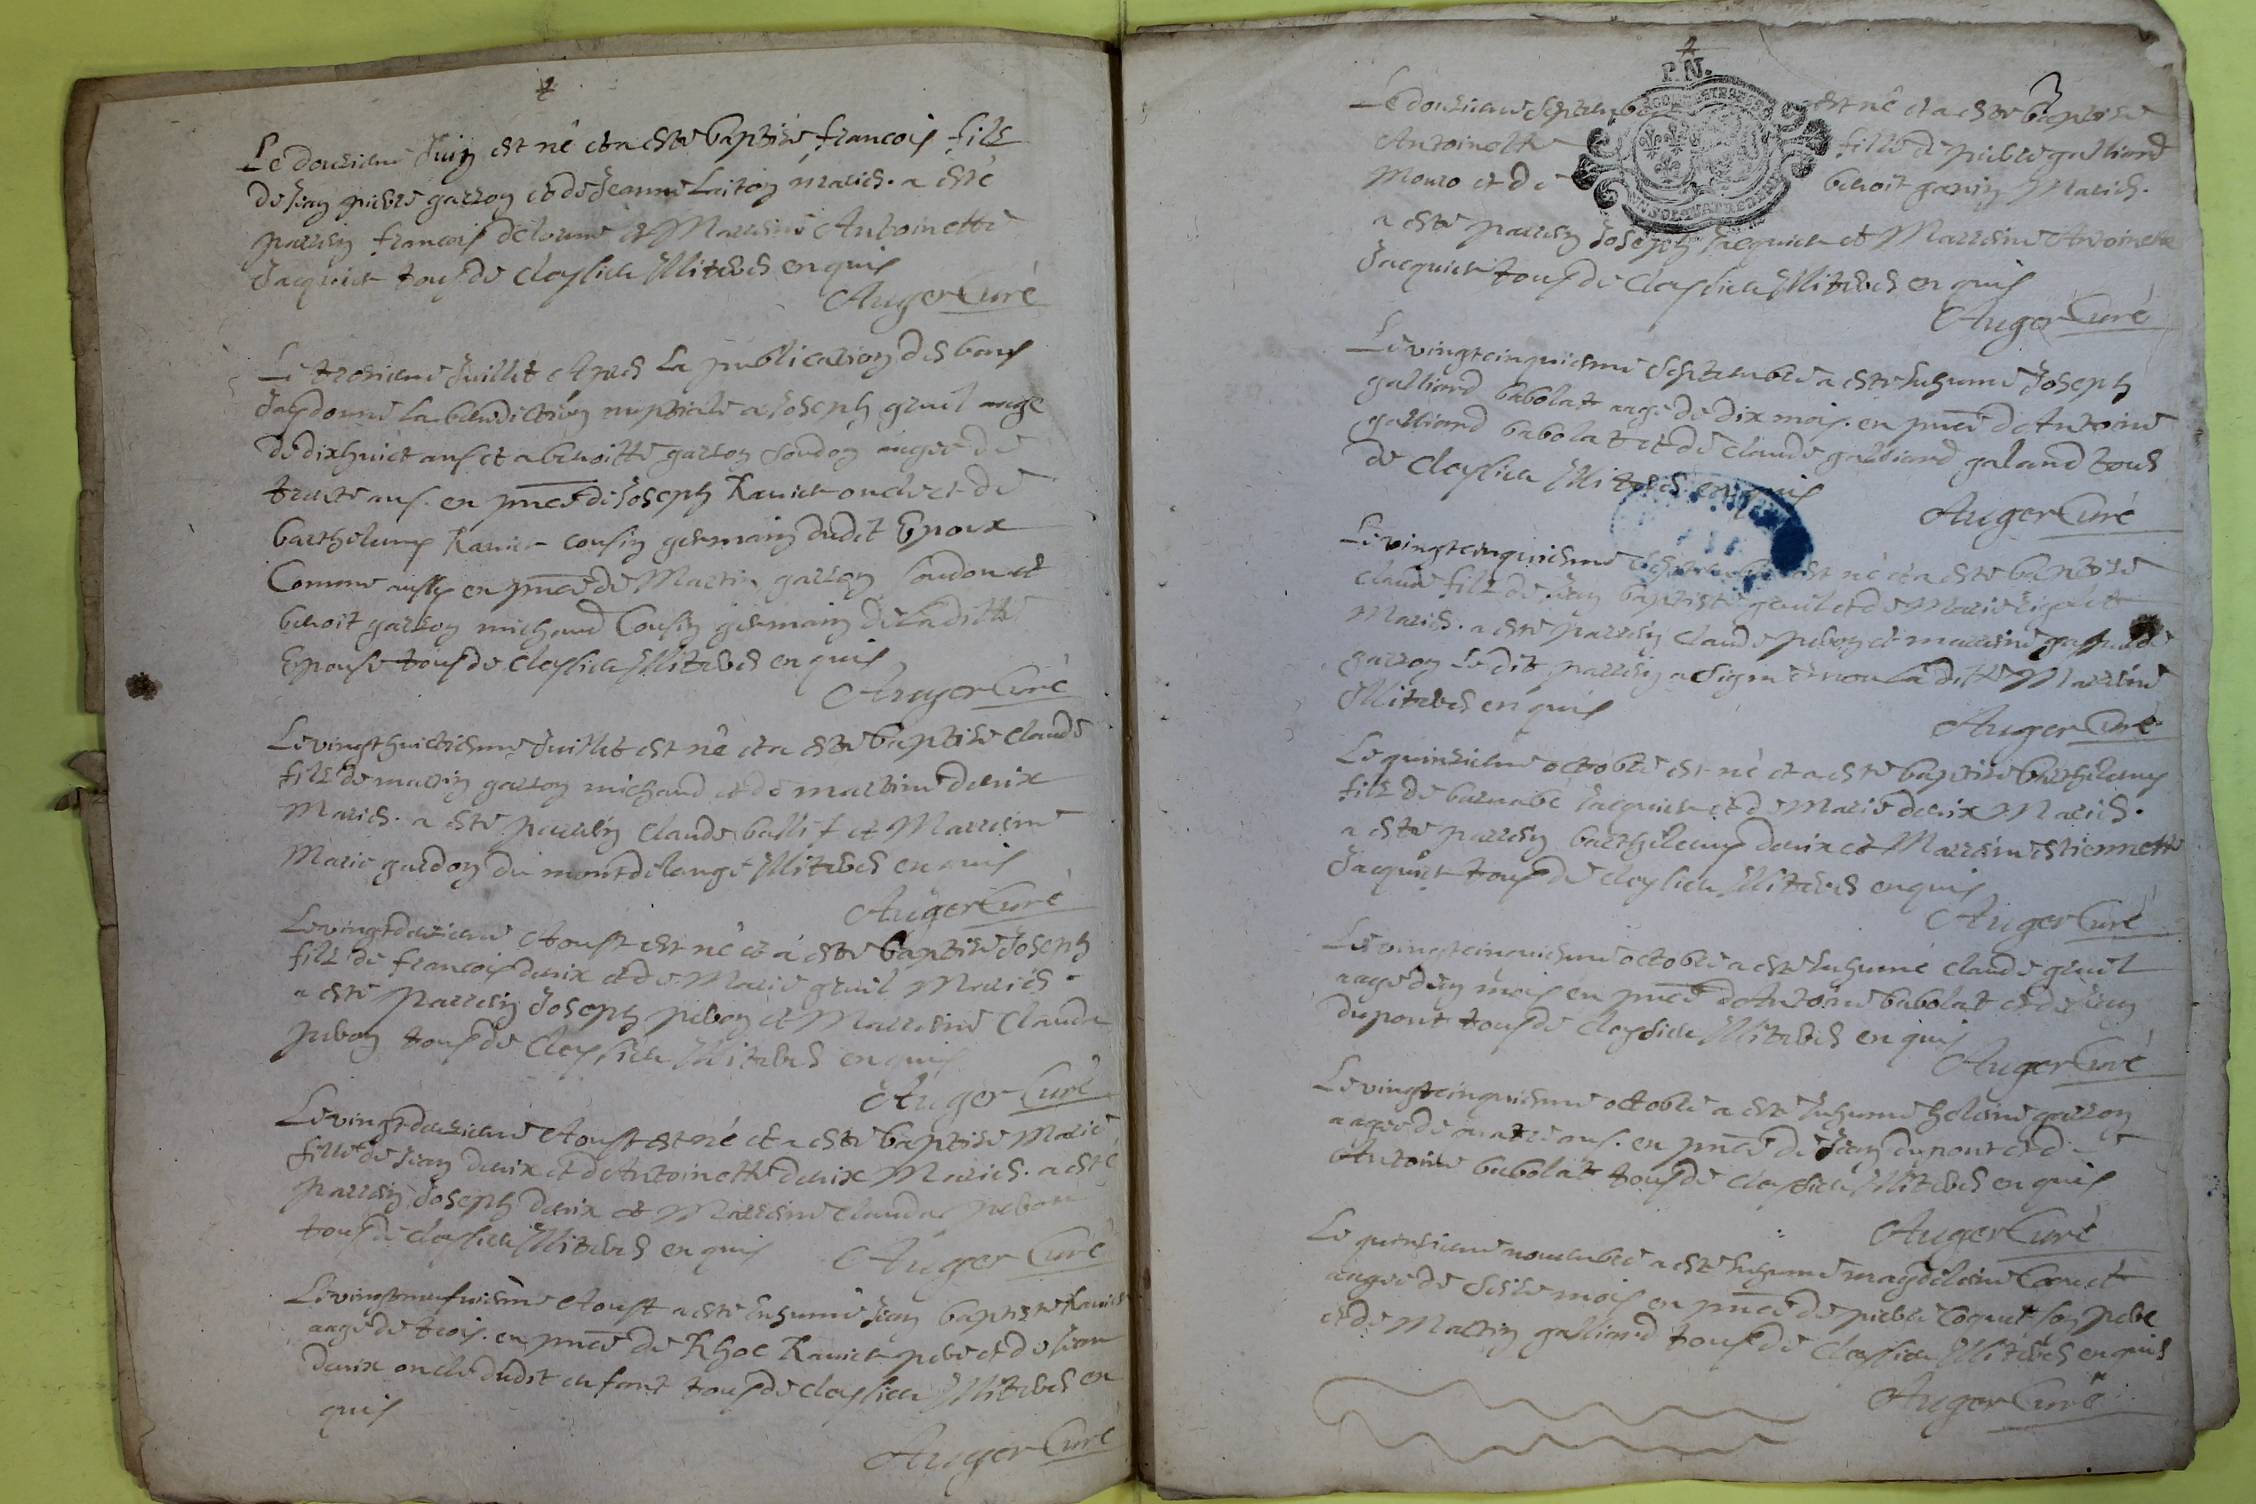 Le douzieme Juin est né et a esté baptisé françois fils
de Jean pierre garron et de Jeanne Laiton mariés. a esté
parrein françois delorme et Marreine Antoinette
Jacquier tous de cleysieu Illiterés enquis
Auger Curé
Le trosieme Juillet Apres La publication des bans
Jay donné La benediction nuptiale a Joseph gruel aagé
de dixhuict ans et a benoitte garron soudon aagée de
trente ans. en pnce de Joseph Ravier oncle et de
barthelemy Ravier cousin germain dudit Epoux
Comme aussy en pnce de Martin garron soudon et
benoit garron michaud Cousin germain de Laditte
Epouse tous de cleysieu Illiterés enquis
Auger Curé
Le vingthuictiesme Juillet est né et a esté baptisé claude
fils de martin garron michaud et de martine derix
Mariés. a esté parrein claude ballif et Marreine
Marie gardon du mont delange Illiterés enquis
Auger Curé
Le vingtdeuzieme Aoust est né et a esté baptisé Joseph
fils de françois derix et de Marie gruel Mariés.
a esté Parrein Joseph pebon et Marreine Clauda
pebon tous de Cleysieu Illiterés enquis
Auger Curé
Le vingtdeuzieme Aoust est né et a esté baptisé Marie
fille de Jean derix et de Antoinette derix Mariés. a esté
parrein Joseph derix et Marreine Clauda pebon
tous de cleysieu Illiterés enquis Auger Curé
Le vingtneufuieme Aoust a esté Inhumé Jean baptiste Ravier
aagé de trois. en pnce de Rhoc Ravier pere et de Jean
derix oncle dudit enfant tous de cleysieu Illiterés en
quis
Auger Curé
P.N.
Le douzieme Septembre est né et a esté baptisé
Antoinette fille de pierre galliard
Mouro et de benoit garrin Mariés.
a esté parrein Joseph Jacquier et Marreine Antoinette
Jacquier tous de cleysieu Illiterés enquis
Auger Curé
Le vingtcinquiesme Septembre a esté Inhumé Joseph
galliard babolat aagé de dix mois. en pnce de Antoine
galliard babolat et de claude galliard galand tous
de cleysieu Illiterés enquis
Auger Curé
Le vingtcinquiesme est né et a esté baptisé
claude fils de Jean baptiste gruel et de Marie
Mariés. a esté parrein claude pebon et marreine
garron Ledit parrein a signé et non Laditte Marreine
Illiterés enquis
Auger Curé
Le quinzieme octobre est né et a esté baptisé barthelemy
fils de barnabé Jacquier et de Marie derix Mariés.
a esté parrein barthelemy derix et Marreine estiennette
Jacquier tous de cleysieu Illiterés enquis
Auger Curé
Le vingtcinquiesme octobre a esté Inhumé claude gruel
aagé d'un mois en pnce de Antoine babolat et de Jean
dupont tous de cleysieu Illiterés enquis
Auger Curé
Le vingtcinquiesme octobre a esté Inhumé helaine garron
aagée de quatre ans. en pnce de Jean dupont et de
Antoine babolat tous de cleysieu Illiterés enquis
Auger Curé
Le quinzieme nouembre a esté Inhumé magdelaine Coquet
aagée de seize mois en pnce de pierre Coquet son pere
et de Martin galliard tous de cleysieu Illiterés enquis
Auger Curé